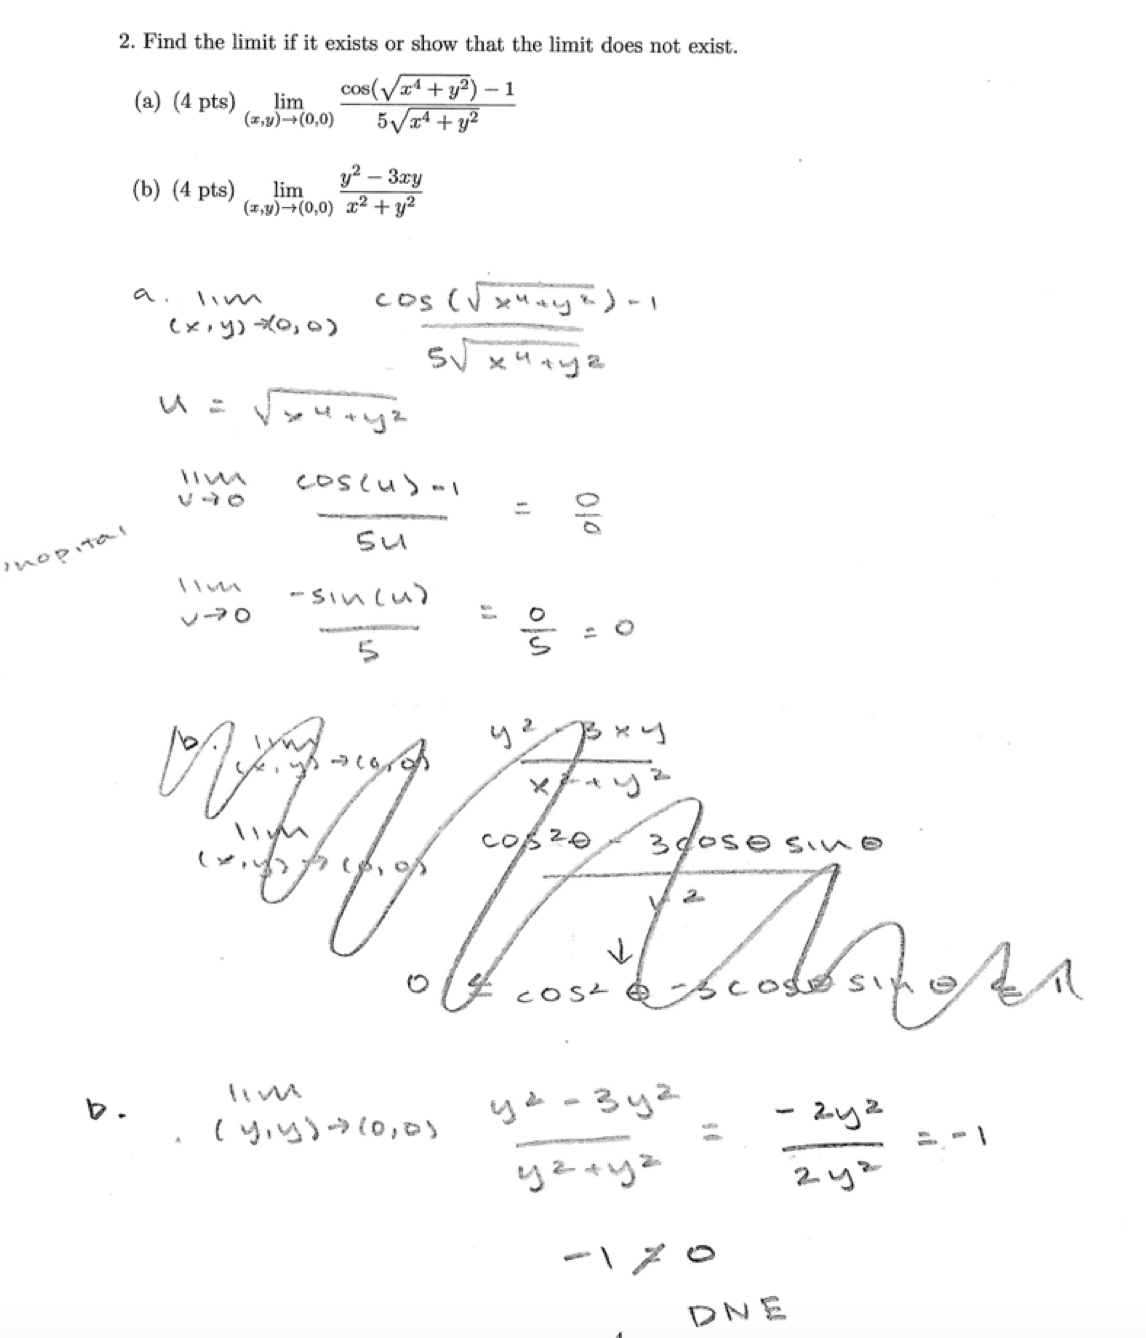 2. Find the limit if it exists or show that the limit does not exist.
(a) (4 pts) lim (x,y)→(0,0) (cos(√(x⁴ + y²)) − 1) / (5√(x⁴ + y²))
(b) (4 pts) lim (x,y)→(0,0) (y² − 3xy) / (x² + y²)
a. lim (x,y)→(0,0) (cos(√(x⁴+y²)) - 1) / (5√(x⁴+y²))
u = √(x⁴+y²)
lim u→0 (cos(u) - 1) / (5u) = 0/0
lim u→0 (-sin(u)) / 5 = 0/5 = 0
b. lim (x,y)→(0,0) (y² - 3xy) / (x²+y²)
lim (x,y)→(0,0) (cos²θ - 3cosθ sinθ) / r²
↓
0 ≤ cos²θ - 3cosθ sinθ ≤ 1
b. lim (y,y)→(0,0) (y² - 3y²) / (y²+y²) = (-2y²) / (2y²) = -1
-1 ≠ 0
DNE